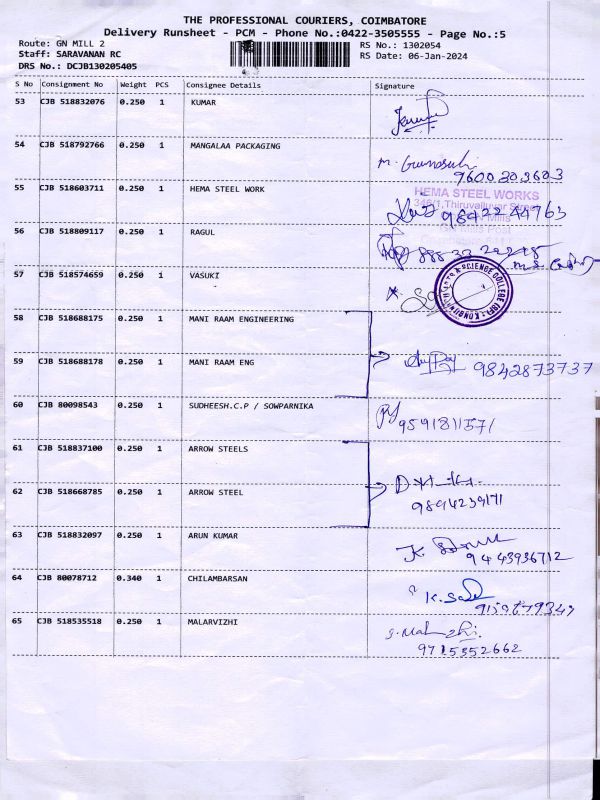 THE PROFESSIONAL COURIERS, COIMBATORE
Delivery Runsheet - PCM - Phone No.:0422-3505555 - Page No.:5
Route: GN MILL 2 RS No.: 1302054
Staff: SARAVANAN RC RS Date: 06-Jan-2024
DRS No.: DCJB130205405
S No Consignment No Weight PCS Consignee Details Signature
53 CJB 518832076 0.250 1 KUMAR
54 CJB 518792766 0.250 1 MANGALAA PACKAGING
9600303603
55 CJB 518603711 0.250 1 HEMA STEEL WORK
HEMA STEEL WORKS
346/1, Thiruvalluvar Street
9842244763
56 CJB 518809117 0.250 1 RAGUL
57 CJB 518574659 0.250 1 VASUKI
58 CJB 518688175 0.250 1 MANI RAAM ENGINEERING
59 CJB 518688178 0.250 1 MANI RAAM ENG
9842873737
60 CJB 80098543 0.250 1 SUDHEESH.C.P / SOWPARNIKA
9591811571
61 CJB 518837100 0.250 1 ARROW STEELS
62 CJB 518668785 0.250 1 ARROW STEEL
9894239171
63 CJB 518832097 0.250 1 ARUN KUMAR
9443936712
64 CJB 80078712 0.340 1 CHILAMBARSAN
65 CJB 518535518 0.250 1 MALARVIZHI
9715352662